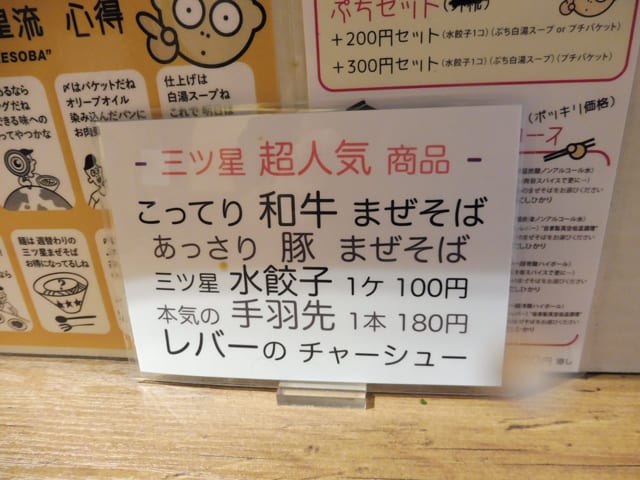 星流 心得
ESOBA"
〆はバケットだね
オリーブオイル
染み込んだパンに
お肉
仕上げは
白湯スープね
これで明日は
できる味への
ってやつかな
麺は週替わりの
三ツ星まぜそば
お得になってるしね
ぷちセット
+200円セット(水餃子1コ)(ぷち白湯スープ or プチバケット)
+300円セット(水餃子1コ)(ぷち白湯スープ)(プチバケット)
(ポッキリ価格)
コース
- 三ツ星 超人気 商品 -
こってり 和牛 まぜそば
あっさり 豚 まぜそば
三ツ星 水餃子 1ケ 100円
本気の 手羽先 1本 180円
レバーの チャーシュー